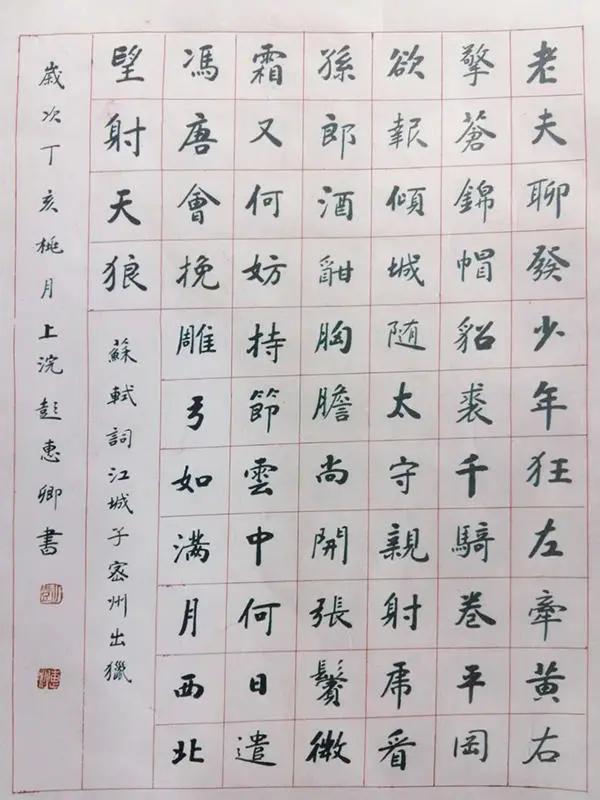 老夫聊發少年狂左牽黃右
擎蒼錦帽貂裘千騎卷平岡
欲報傾城随太守親射虎看
孫郎酒酣胸膽尚開張鬢微
霜又何妨持節雲中何日遣
馮唐會挽雕弓如满月西北
望射天狼
蘇軾詞江城子密州出獵
歲次丁亥桃月上浣彭惠卿書